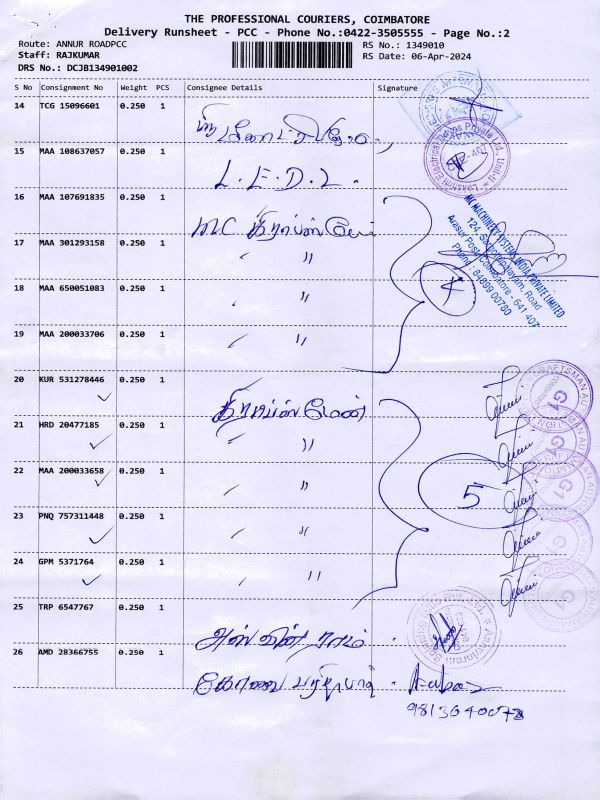 THE PROFESSIONAL COURIERS, COIMBATORE
Delivery Runsheet - PCC - Phone No.:0422-3505555 - Page No.:2
Route: ANNUR ROADPCC
RS No.: 1349010
Staff: RAJKUMAR
RS Date: 06-Apr-2024
DRS No.: DCJB134901002
S No Consignment No Weight PCS Consignee Details Signature
14 TCG 15096601 0.250 1
15 MAA 108637057 0.250 1 L.E.D.L.
16 MAA 107691835 0.250 1 MC
17 MAA 301293158 0.250 1 〃
18 MAA 650051083 0.250 1 〃
19 MAA 200033706 0.250 1 〃
MC MACHINERY SYSTEMS INDIA PRIVATE LIMITED
Arasur Post, Coimbatore - 641 407
Phone : 84899 00780
20 KUR 531278446 0.250 1
21 HRD 20477185 0.250 1 〃
22 MAA 200033658 0.250 1 〃
5
23 PNQ 757311448 0.250 1 〃
24 GPM 5371764 0.250 1 〃
25 TRP 6547767 0.250 1
26 AMD 28366755 0.250 1 கோவை